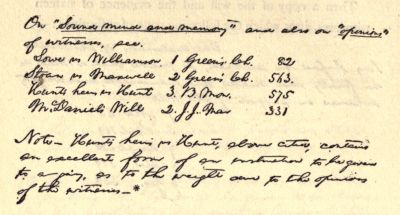 On "Sound mind and memory" and also on "opinions"
of witness, see.
Lowe vs Williamson 1 Green's Ch. 82
Sloan vs Maxwell 2 Green's Ch. 563.
Hunts heirs vs Hunt 3. B Mon. 575
McDaniels Will 2. J.J. Mar 331
Note - Hunts heirs vs Hunt, above cited, contains
an excellent form of an instruction to be given
to a jury, as to the weight due to the opinions
of the witness - *